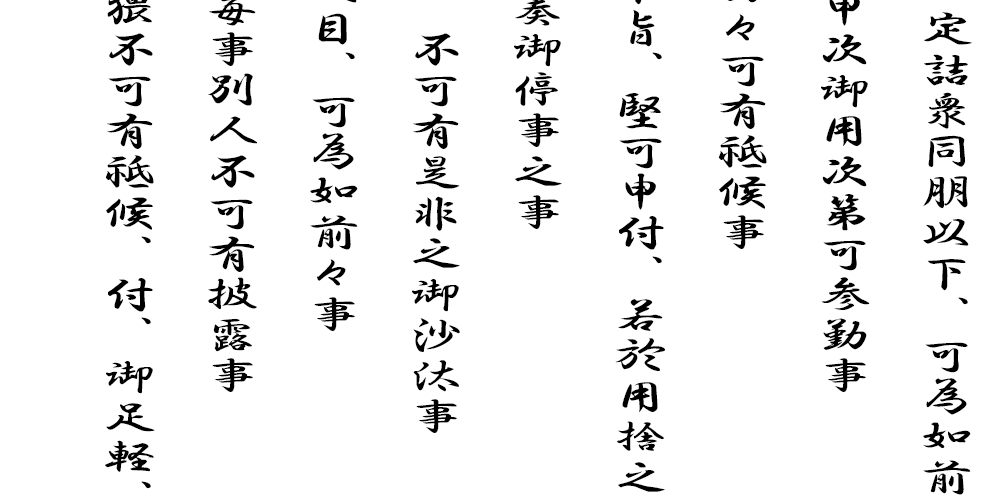 定詰衆同朋以下、可為如前
申次御用次第可参勤事
々可有祗候事
旨、堅可申付、若於用捨之
奏御停事之事
不可有是非之御沙汰事
目、可為如前々事
毎事別人不可有披露事
猥不可有祗候、付、御足軽、